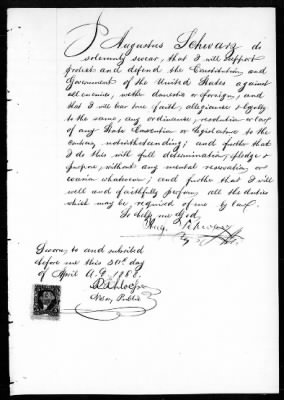 I Augustus Schwarz do
solemnly swear, that I will support
protect and defend the Constitution, and
Government of the United States against
all enemies, wether domestic or foreign; and
that I will bear true faith, allegiance & loyalty
to the same, any ordinence, resolution or law
of any State Convention or Legislature to the
contrary notwithstanding; and further that
I do this with full determination, pledge &
purpose, without any mental reservation or
evasion whatsoever; and further that I will
well and faithfully perform, all the duties
which may be required of me by law.
So help me God.
Aug. Schwarz
Sworn to and subscribed
before me this 30th day
of April A.D. 1868.
Notary Public